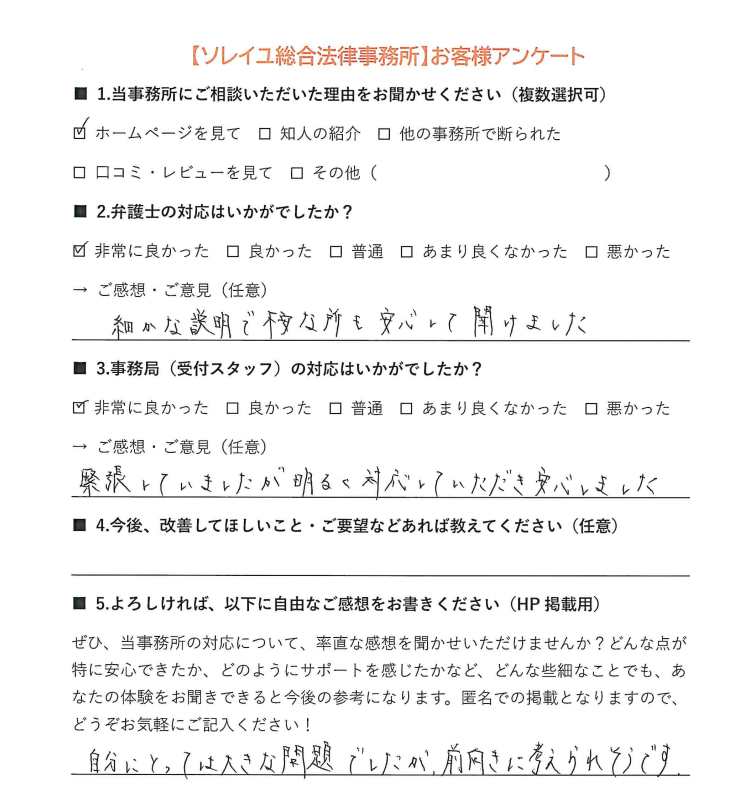 【ソレイユ総合法律事務所】お客様アンケート
■ 1.当事務所にご相談いただいた理由をお聞かせください（複数選択可）
☑ ホームページを見て □ 知人の紹介 □ 他の事務所で断られた
□ 口コミ・レビューを見て □ その他（ ）
■ 2.弁護士の対応はいかがでしたか？
☑ 非常に良かった □ 良かった □ 普通 □ あまり良くなかった □ 悪かった
→ ご感想・ご意見（任意）
細かな説明で不安な所も安心して聞けました
■ 3.事務局（受付スタッフ）の対応はいかがでしたか？
☑ 非常に良かった □ 良かった □ 普通 □ あまり良くなかった □ 悪かった
→ ご感想・ご意見（任意）
緊張していましたが明るく対応していただき安心しました
■ 4.今後、改善してほしいこと・ご要望などあれば教えてください（任意）
■ 5.よろしければ、以下に自由なご感想をお書きください（HP 掲載用）
ぜひ、当事務所の対応について、率直な感想を聞かせいただけませんか？どんな点が
特に安心できたか、どのようにサポートを感じたかなど、どんな些細なことでも、あ
なたの体験をお聞きできると今後の参考になります。匿名での掲載となりますので、
どうぞお気軽にご記入ください！
自分にとっては大きな問題でしたが、前向きに考えられそうです。